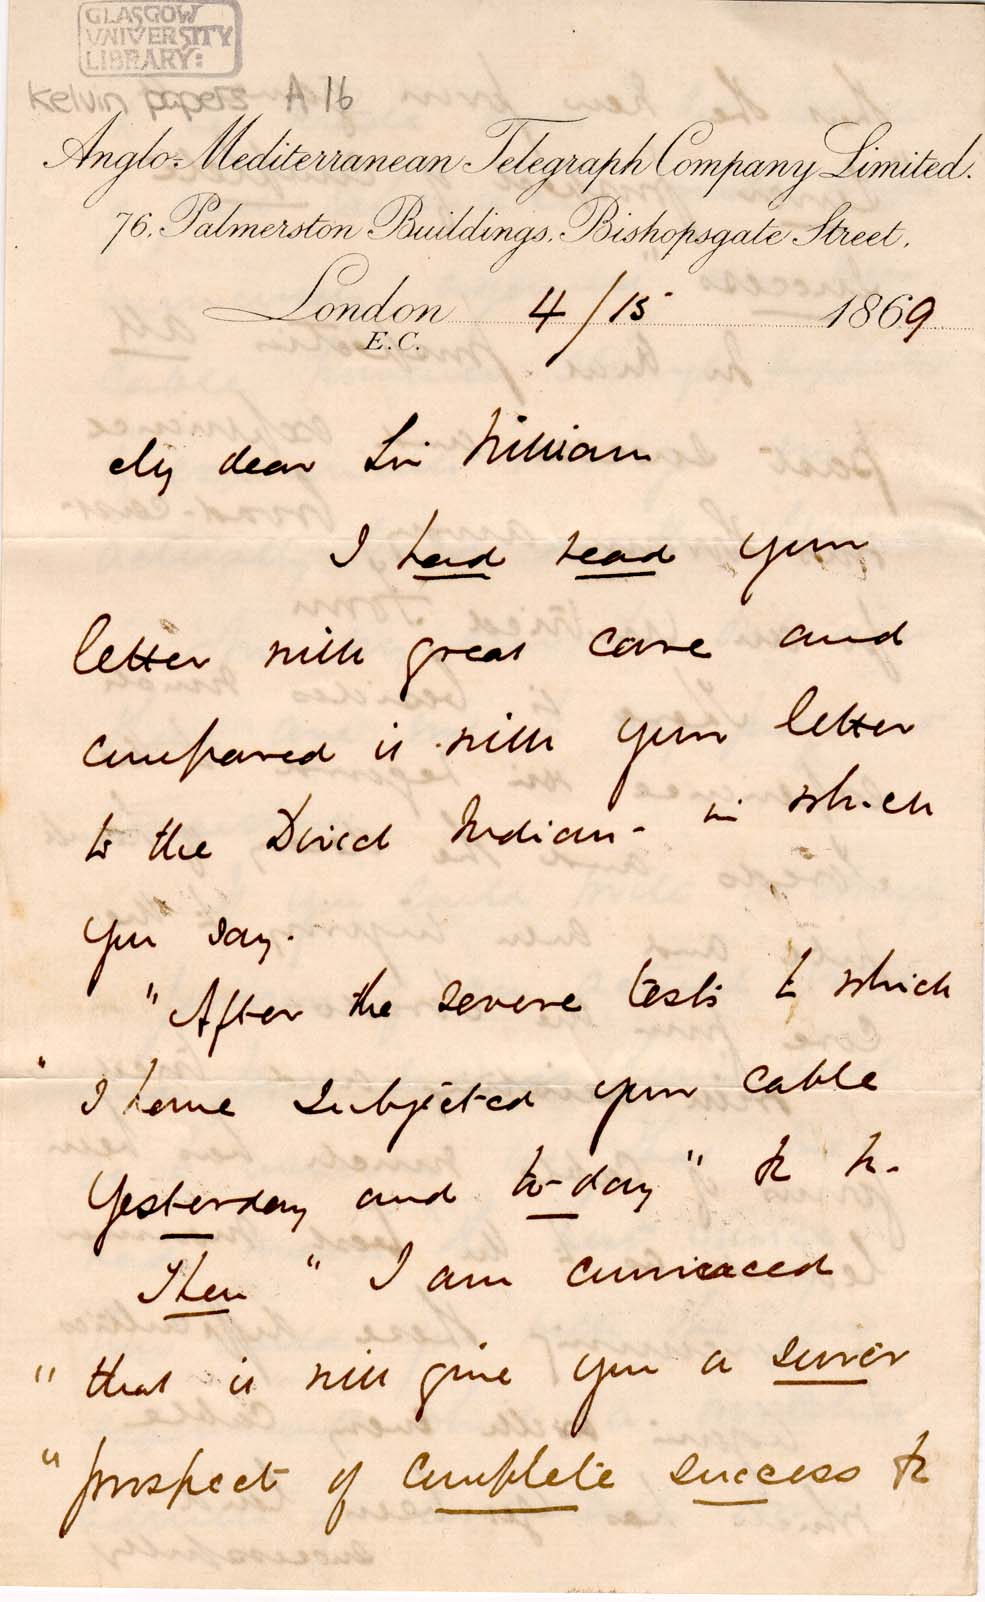 GLASGOW
UNIVERSITY
LIBRARY:
Kelvin papers A 16
Anglo-Mediterranean Telegraph Company Limited.
76, Palmerston Buildings, Bishopsgate Street,
London 4/15 1869
E.C.
My dear Sir William
I had read your
letter with great care and
compared it with your letter
to the Direct Indian - in which
you say.
"After the severe tests to which
"I have subjected your cable
Yesterday and to-day" &c &c.
Then "I am convinced
"that it will give you a surer
"prospect of complete success &c